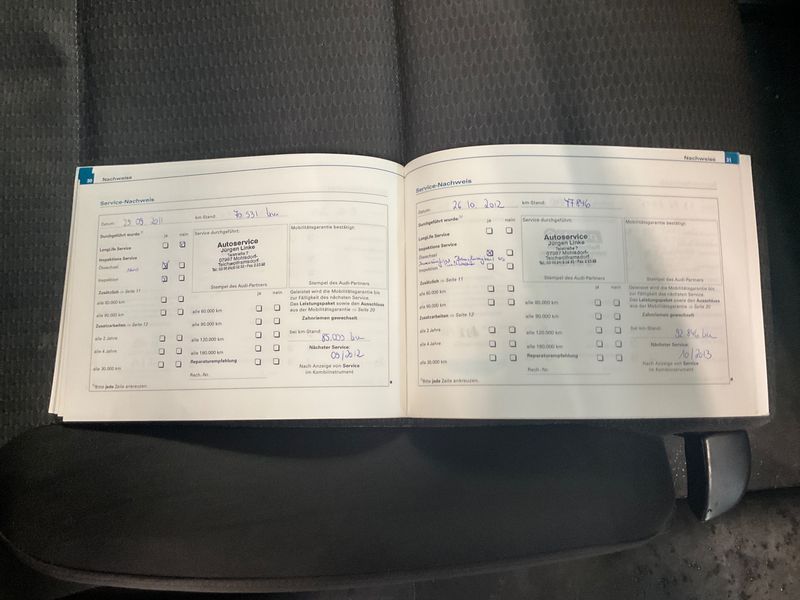 30 Nachweise
Service-Nachweis
Datum: 23 09 2011 km-Stand: 70 531 km
Durchgeführt wurde:¹⁾ ja nein
LongLife Service
Inspektions Service
Ölwechsel
Inspektion
Zusätzlich ⇒ Seite 11
alle 60.000 km
alle 90.000 km
Zusatzarbeiten ⇒ Seite 12
alle 2 Jahre
alle 4 Jahre
alle 30.000 km
¹⁾Bitte jede Zeile ankreuzen.
Service durchgeführt:
Autoservice
Jürgen Linke
Teslastraße 7
07987 Mohlsdorf-
Teichwolframsdorf
Stempel des Audi-Partners
ja nein
alle 60.000 km
alle 90.000 km
alle 120.000 km
alle 180.000 km
Reparaturempfehlung
Rech.-Nr.
Mobilitätsgarantie bestätigt:
Stempel des Audi-Partners
Geleistet wird die Mobilitätsgarantie bis
zur Fälligkeit des nächsten Service.
Das Leistungspaket sowie den Ausschluss
aus der Mobilitätsgarantie ⇒ Seite 20
Zahnriemen gewechselt
bei km-Stand:
85.000 km
Nächster Service:
09/2012
Nach Anzeige von Service
im Kombiinstrument
Nachweise 31
Service-Nachweis
Datum: 26 10. 2012 km-Stand: 77846
Durchgeführt wurde:¹⁾ ja nein
LongLife Service
Inspektions Service
Ölwechsel
Inspektion
Zusätzlich ⇒ Seite 11
alle 60.000 km
alle 90.000 km
Zusatzarbeiten ⇒ Seite 12
alle 2 Jahre
alle 4 Jahre
alle 30.000 km
¹⁾Bitte jede Zeile ankreuzen.
Service durchgeführt:
Autoservice
Jürgen Linke
Teslastraße 7
07987 Mohlsdorf-
Teichwolframsdorf
Stempel des Audi-Partners
ja nein
alle 60.000 km
alle 90.000 km
alle 120.000 km
alle 180.000 km
Reparaturempfehlung
Rech.-Nr.
Mobilitätsgarantie bestätigt:
Stempel des Audi-Partners
Geleistet wird die Mobilitätsgarantie bis
zur Fälligkeit des nächsten Service.
Das Leistungspaket sowie den Ausschluss
aus der Mobilitätsgarantie ⇒ Seite 20
Zahnriemen gewechselt
bei km-Stand:
92 846 km
Nächster Service:
10/2013
Nach Anzeige von Service
im Kombiinstrument